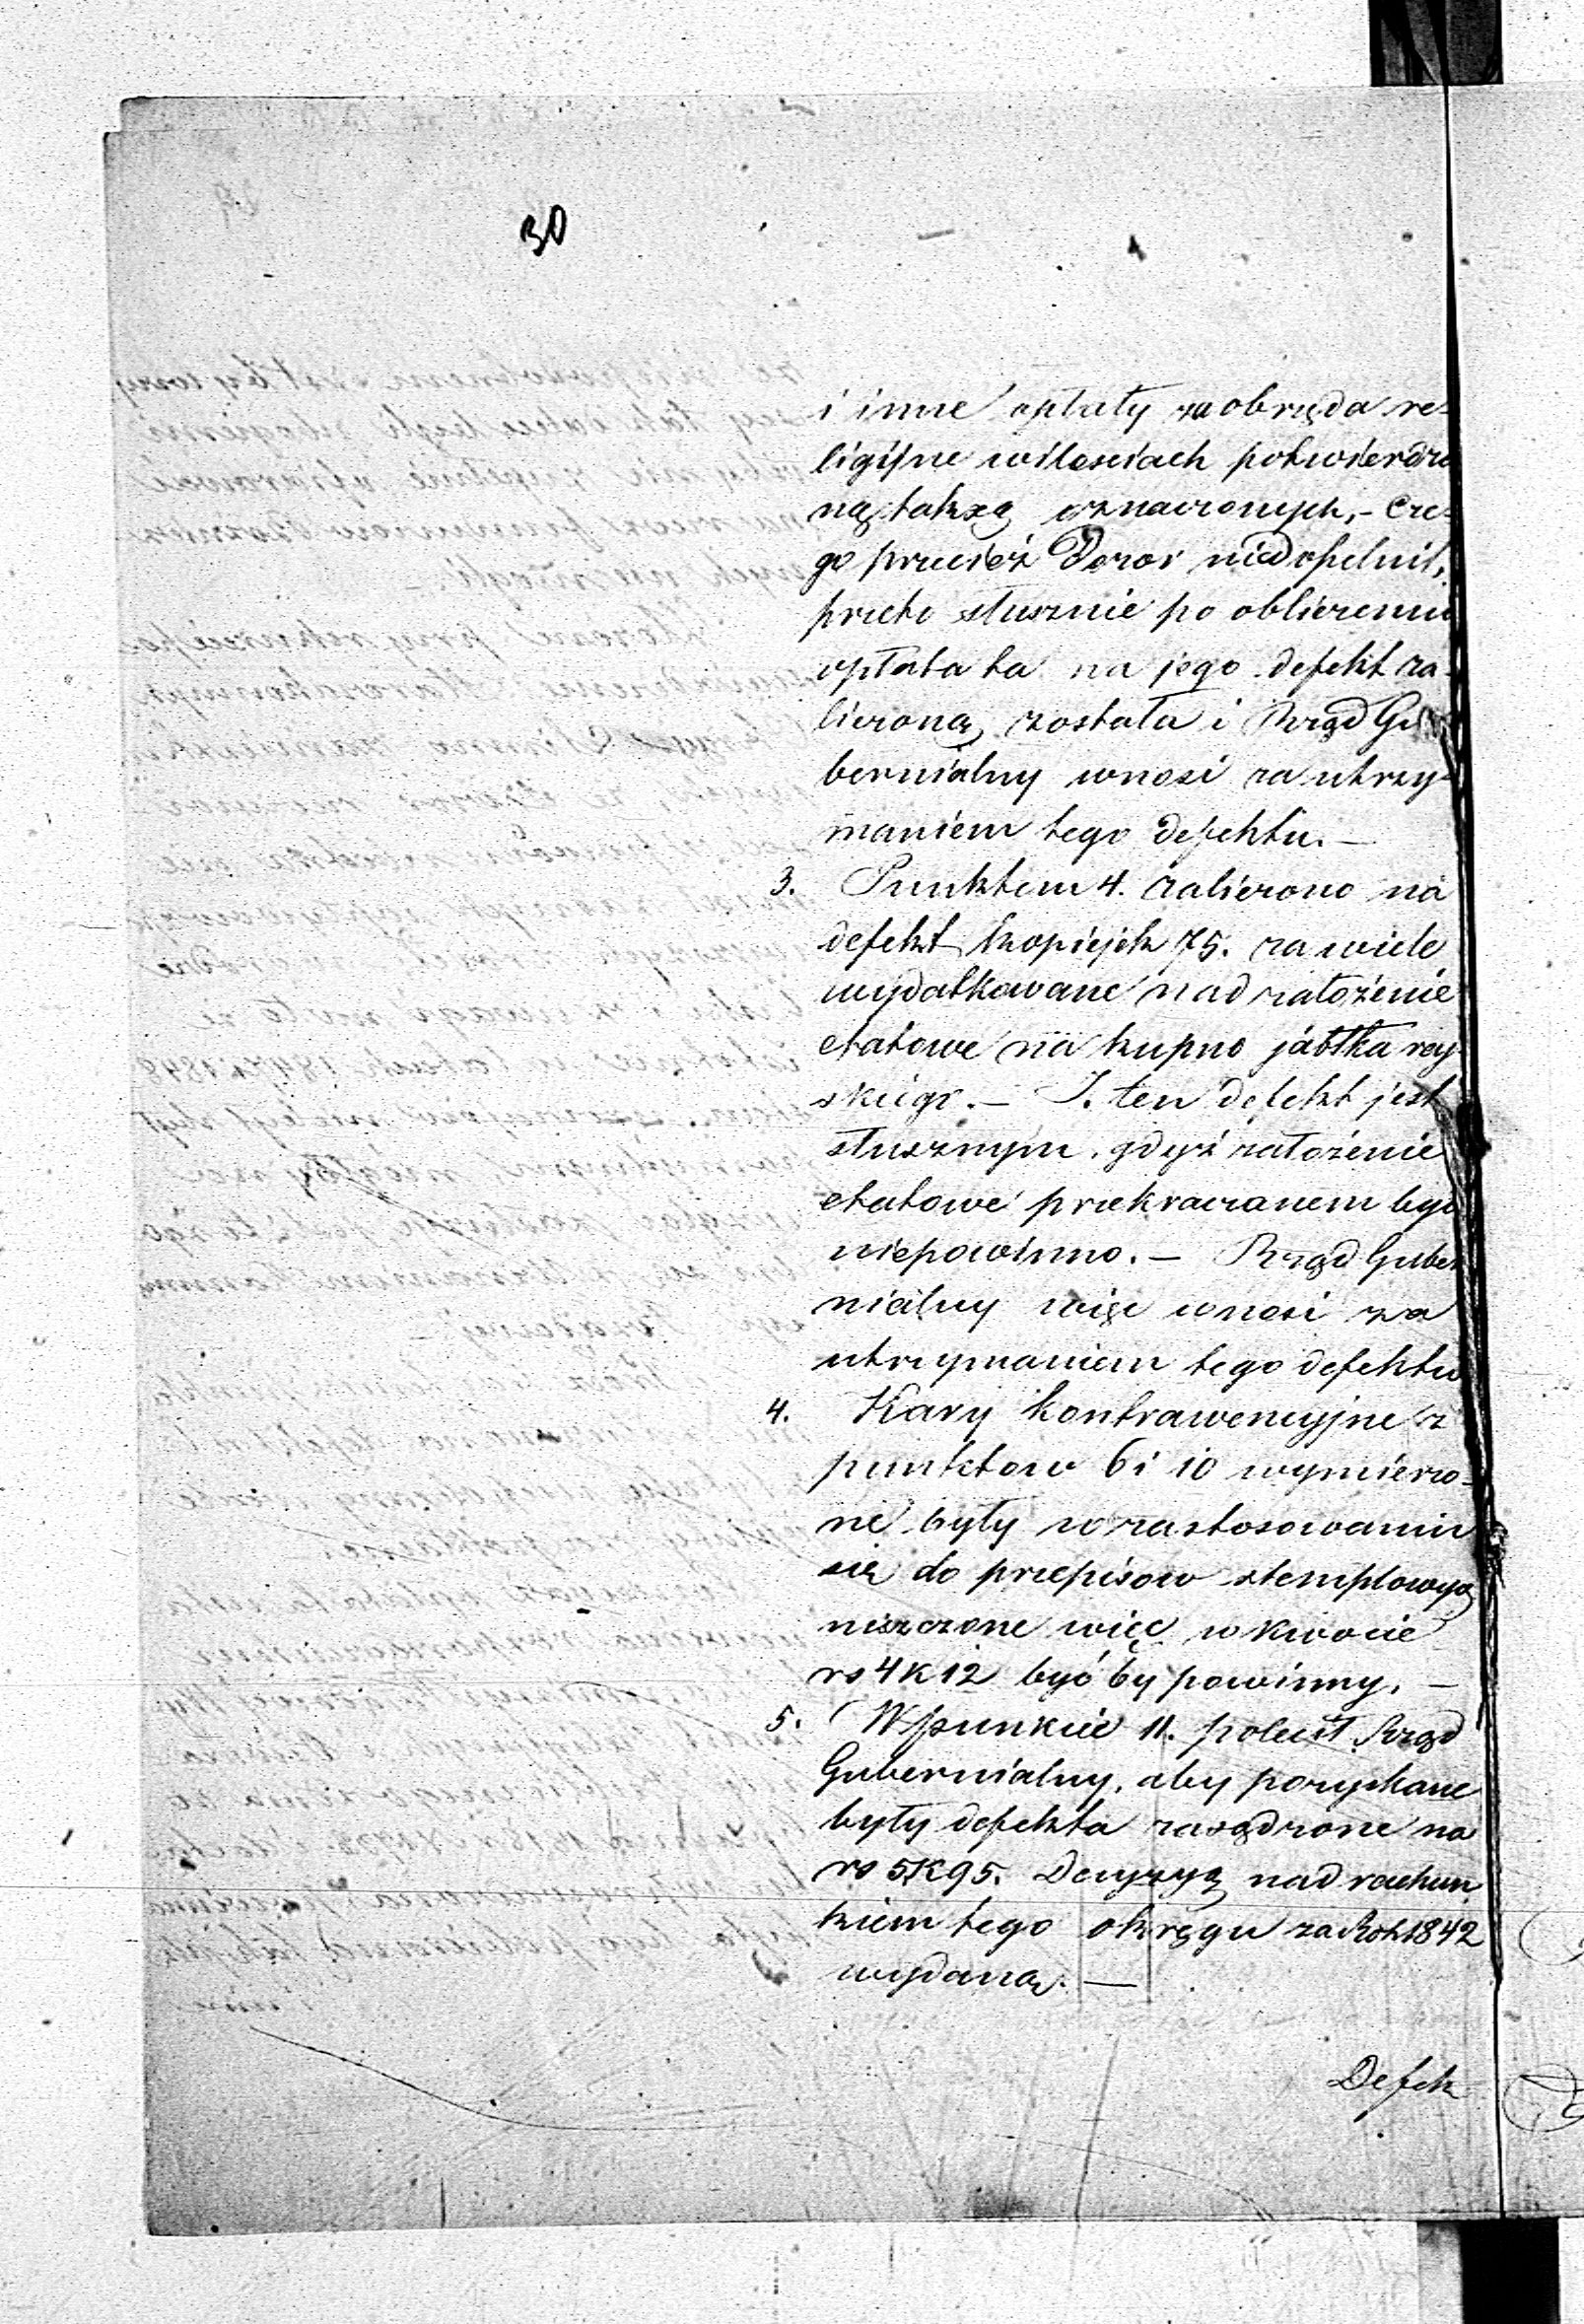 30
i inne opłaty za obrzęda re-
ligijne wilosciach potwierdzo
ną taksą oznaczonych, - Cze-
go przecież Dozor niedopełnił,
przeto słusznie po obliczeniu
opłata ta na jego defekt za-
liczoną została i Rząd Gu
bernialny wnosi za utrzy-
maniem tego defektu. —
3. Punktem 4. zaliczono na
defekt kopiejek 75. za wiele
wydatkowane nad założenie
etatowe na kupno jabłka ray-
skiego. — I ten defekt jest
słusznym, gdyż założenie
etatowe przekraczanem być
niepowinno. — Rząd Guber
nialny więc wnosi za
utrzymaniem tego defektu
4. Kary kontrawencyjne z
punktow 6 i 10 wymierzo-
ne były w zastosowaniu
się do przepisow stemplowych
niszczone więc w kwocie
rs 4 k 12 być by powinny. —
5. W punkcie 11. polecił Rząd
Gubernialny, aby pozyskane
były defekta zasądzone na
rs 5 K 95. Decyzyą nad rachun
kiem tego okręgu za Rok 1842
wydaną. —
Defek